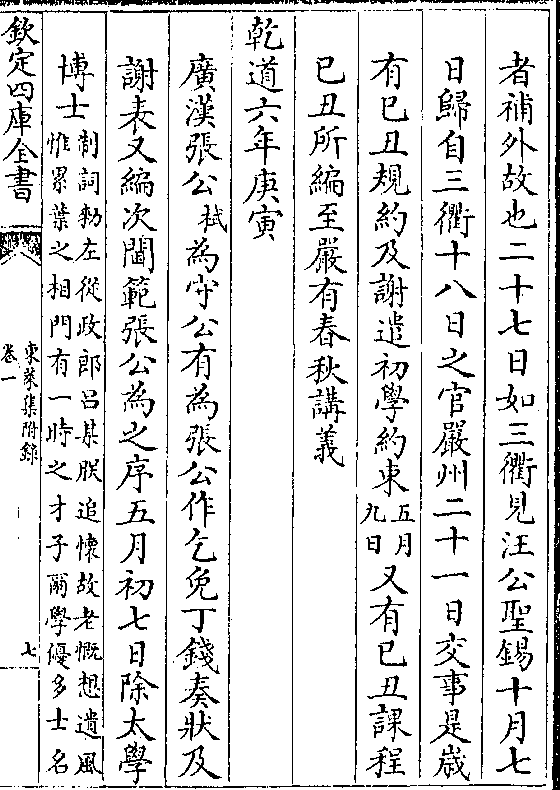 者補外故也二十七日如三衢見汪公聖錫十月七
日歸自三衢十八日之官嚴州二十一日交事是歲
有己丑規約及謝遣初學約束五月九日又有己丑課程
己丑所編至嚴有春秋講義
乾道六年庚寅
廣漢張公栻為守公有為張公作乞免丁錢奏狀及
謝表又編次閫範張公為之序五月初七日除太學
博士制詞勅左從政郎呂某朕追懷故老慨想遺風
惟累葉之相門有一時之才子爾學優多士名
欽定四庫全書
東萊集附錄
卷一
七